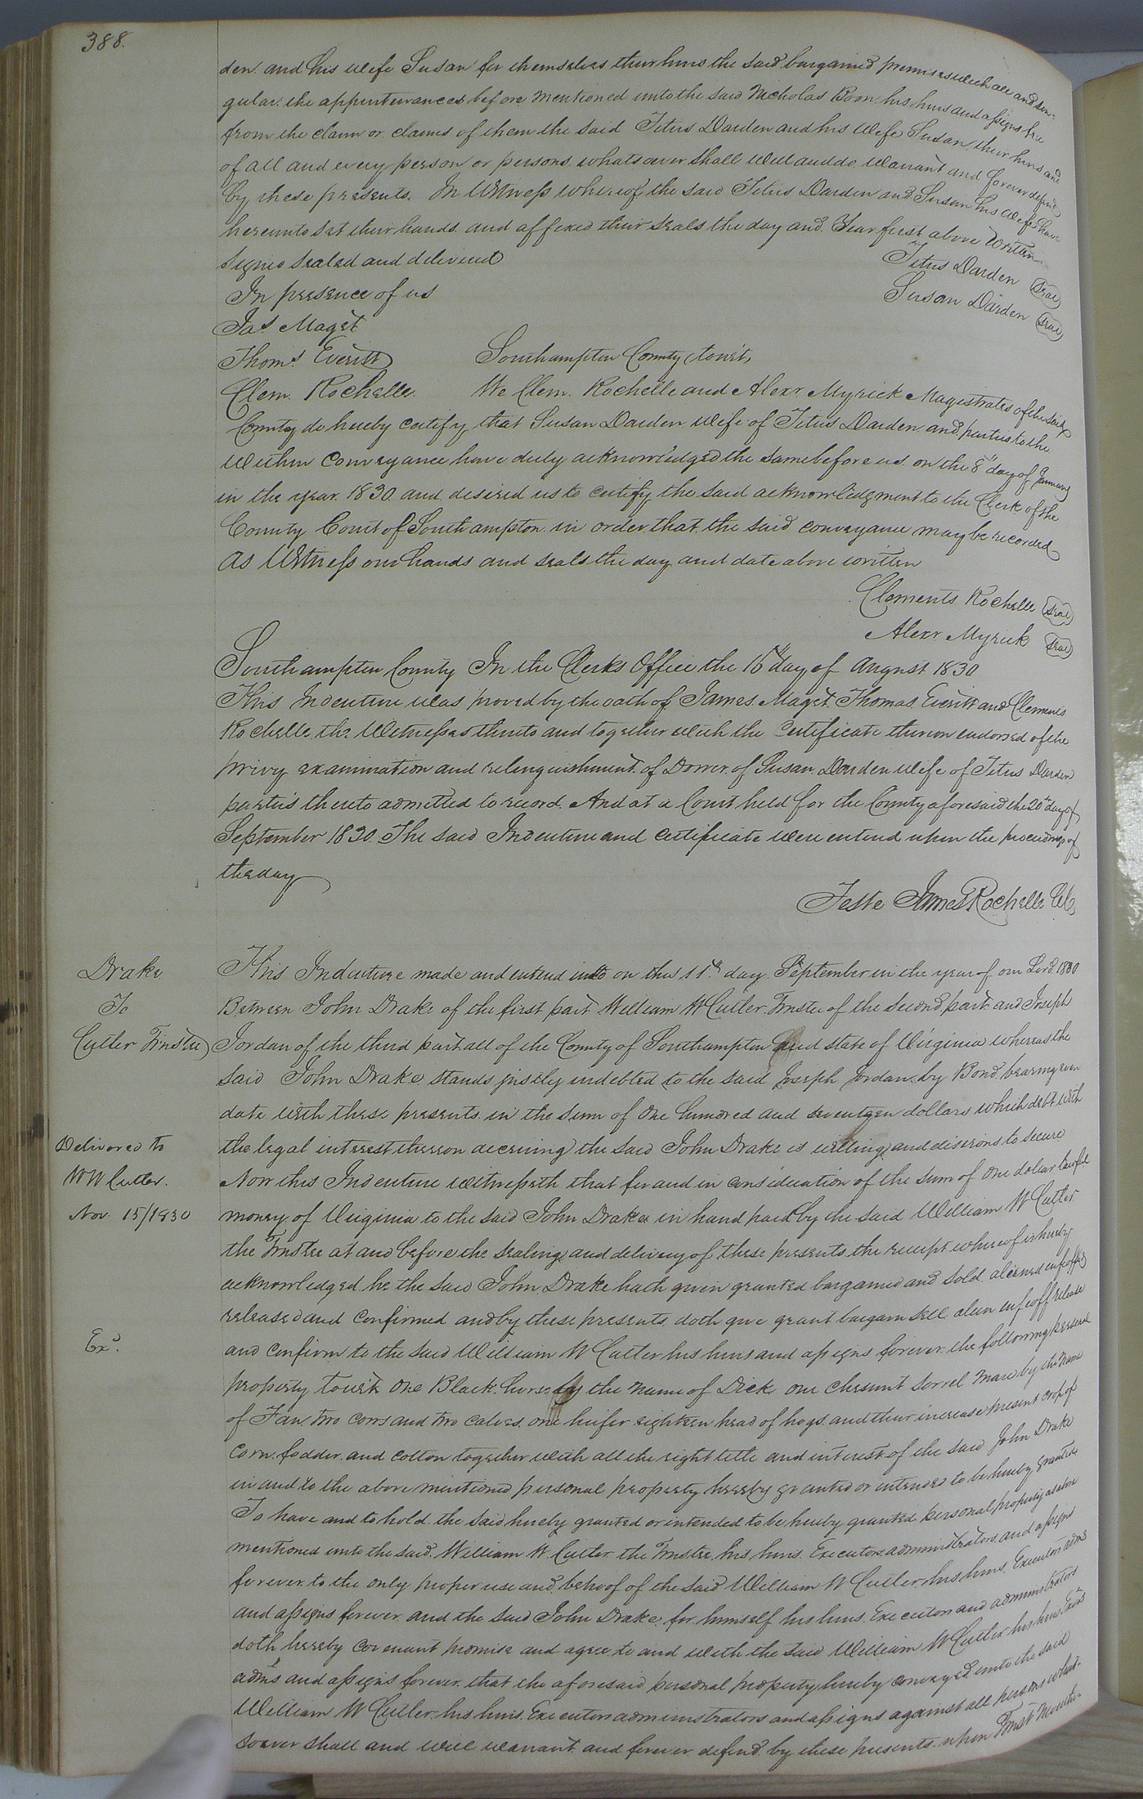 388.
den and his wife Susan for themselves their heirs the said bargained premises with all and sin-
gular the appurtenances before mentioned unto the said Nicholas Boon his heirs and assigns free
from the claim or claims of them the said Titus Darden and his wife Susan their heirs and
of all and every person or persons whatsoever shall will and do warrant and forever defend
by these presents. In Witness whereof the said Titus Darden and Susan his wife have
hereunto set their hands and affixed their seals the day and Year first above written
Signed sealed and delivered
Titus Darden Seal
In presence of us
Susan Darden Seal
Jas Maget
Thoms Everitt
Southampton County towit,
Clem. Rochelle.
We Clem. Rochelle and Alexr Myrick Magistrates of the said
County do hereby certify that Susan Darden wife of Titus Darden and parties to the
Within Conveyance have duly acknowledged the same before us on the 8th day of January
in the year 1830 and desired us to certify the said acknowledgment to the Clerk of the
County Court of Southampton in order that the said conveyance may be recorded
As Witness our hands and seals the day and date above written
Clements Rochelle Seal
Alexr Myrick Seal
Southampton County In the Clerks Office the 16th day of August 1830
This Indenture was proved by the oath of James Maget Thomas Everitt and Clements
Rochelle the Witnesses thereto and together with the Certificate thereon endorsed of the
privy examination and relinquishment of Dower of Susan Darden wife of Titus Darden
parties thereto admitted to record And at a Court held for the County aforesaid the 20th day of
September 1830 The said Indenture and Certificate were enterd upon the proceedings of
the day
Teste James Rochelle
Drake
To
Cutler Trustee
This Indenture made and entered into on this 11th day September in the year of our Lord 1830
Between John Drake of the first part William W Cutler Trustee of the second part and Joseph
Jordan of the third part all of the County of Southampton and state of Virginia whereas the
said John Drake stands justly indebted to the said Joseph Jordan by Bond bearing even
date with these presents in the sum of one hundred and seventeen dollars which debt with
Delivered to
W W Cutler.
Nov 15/1830
the legal interest thereon accruing the said John Drake is willing and desirous to secure
Now this Indenture witnesseth that for and in consideration of the sum of one dollar lawful
money of Virginia to the said John Drake in hand paid by the said William W Cutler
the Trustee at and before the sealing and delivery of these presents the receipt whereof is hereby
acknowledged he the said John Drake hath given granted bargained and sold aliened enfeoffed
released and confirmed and by these presents doth give grant bargain sell alien enfeoff release
Exd.
and confirm to the said William W Cutler his heirs and assigns forever the following personal
property towit One Black horse by the name of Dick one chesnut sorrel mare by the name
of Fan two cows and two calves one heifer eighteen head of hogs and their increase present crop of
corn fodder and cotton together with all the right title and interest of the said John Drake
in and to the above mentioned personal property hereby granted or intended to be hereby granted
To have and to hold the said hereby granted or intended to be hereby granted personal property as above
mentioned unto the said William W Cutler the Trustee his heirs Executors administrators and assigns
forever to the only proper use and behoof of the said William W Cutler his heirs Executors adms
and assigns forever and the said John Drake for himself his heirs Executors and administrators
doth hereby covenant promise and agree to and with the said William W Cutler his heirs Exors
adms and assigns forever that the aforesaid personal property hereby conveyed unto the said
William W Cutler his heirs Executors administrators and assigns against all persons what-
soever shall and will warrant and forever defend by these presents upon Trust